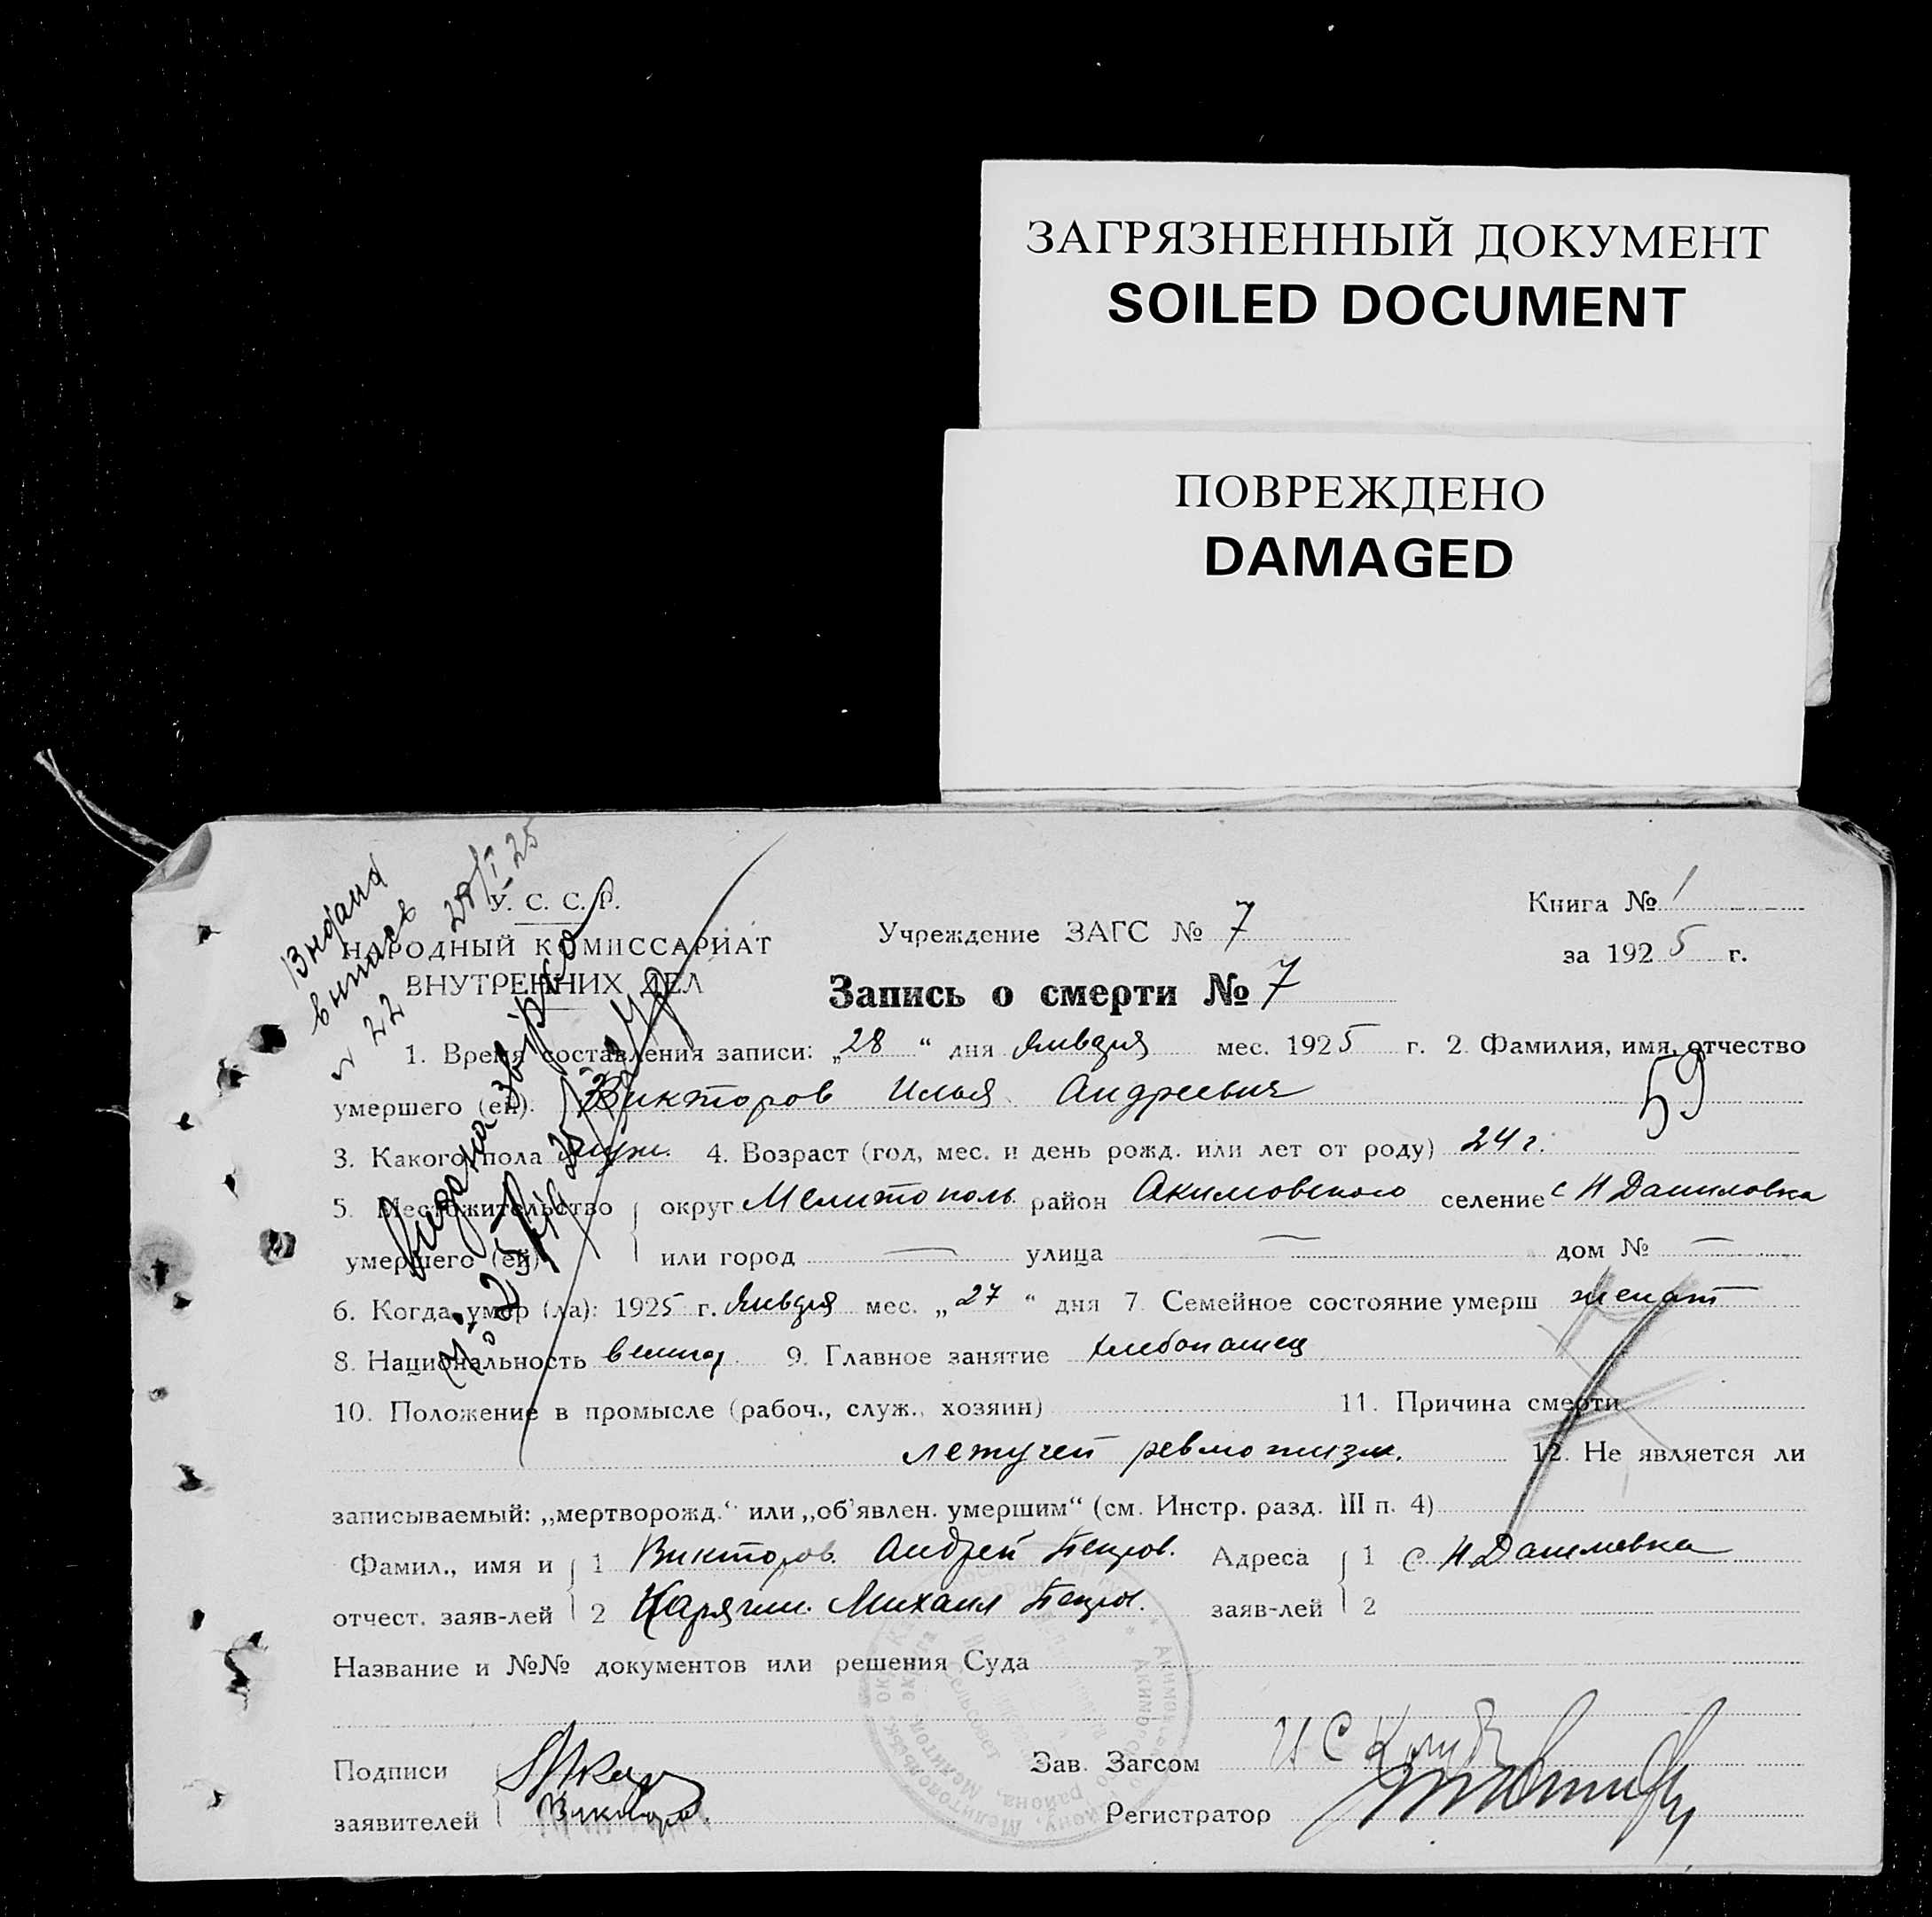 ЗАГРЯЗНЕННЫЙ ДОКУМЕНТ
SOILED DOCUMENT
ПОВРЕЖДЕНО
DAMAGED
У. С. С. Р.
НАРОДНЫЙ КОМИССАРИАТ
ВНУТРЕННИХ ДЕЛ
Учреждение ЗАГС № 7
Книга № 1
за 1925 г.
Запись о смерти № 7
1. Время составления записи: „28“ дня января мес. 1925 г. 2. Фамилия, имя, отчество
умершего (ей). Викторов Илья Андреевич
59
3. Какого пола муж. 4. Возраст (год, мес. и день рожд. или лет от роду) 24 г.
5. Местожительство округ Мелитополь. район Акимовского селение с Н Даниловка
умершего (ей) или город — улица — дом № —
6. Когда умер (ла): 1925 г. января мес. „27“ дня 7. Семейное состояние умерш женат
8. Национальность 9. Главное занятие хлебопашец
10. Положение в промысле (рабоч., служ., хозяин) 11. Причина смерти
летучей ревмотизм. 12. Не является ли
записываемый: „мертворожд.“ или „об'явлен. умершим“ (см. Инстр. разд. III п. 4)
Фамил., имя и 1 Викторов Андрей Петров. Адреса 1 с Н. Даниловка
отчест. заяв-лей 2 Карягин. Михаил Петров. заяв-лей 2
Название и №№ документов или решения Суда
Подписи
Зав. Загсом
заявителей Викторо
Регистратор
22 28/I-25